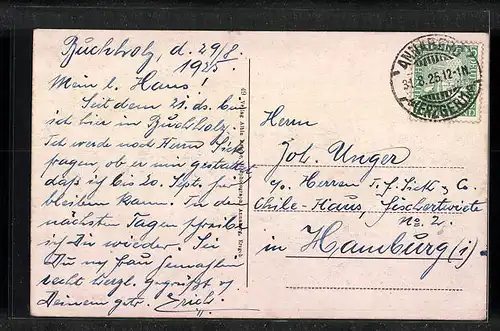 Buchholz, d. 29/8.
1925.
Mein l. Hans!
Seit dem 21. ds. bin
ich hier in Buchholz.
Ich werde noch Herrn Sick
fragen, ob er mir gestattet
daß ich bis 20. Sept. hier
bleiben kann. In den
nächsten Tagen schreibe
ich Dir wieder. Sei
Du mit Frau Gemahlin
recht herzl. gegrüßt v.
Deinem getr. Erich.
Herrn
Joh. Unger
c/o. Herren T. J. Sick & Co.
Chile-Haus, Fischertwiete
No. 2.
in Hamburg (1)
ANNABERG
8.25.12-1N
(ERZGEB.)